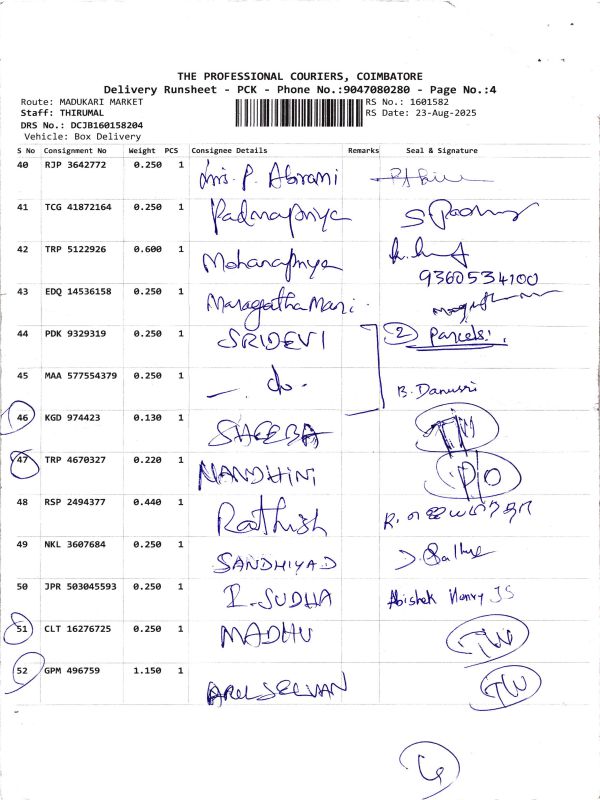 THE PROFESSIONAL COURIERS, COIMBATORE
Delivery Runsheet - PCK - Phone No.:9047080280 - Page No.:4
Route: MADUKARI MARKET RS No.: 1601582
Staff: THIRUMAL RS Date: 23-Aug-2025
DRS No.: DCJB160158204
Vehicle: Box Delivery
S No Consignment No Weight PCS Consignee Details Remarks Seal & Signature
40 RJP 3642772 0.250 1 Mrs. P. Abirami
41 TCG 41872164 0.250 1 Padmapriya
42 TRP 5122926 0.600 1 Mohanapriya
9360534100
43 EDQ 14536158 0.250 1 Maragatha Mani
44 PDK 9329319 0.250 1 SRIDEVI 2 Parcels.
45 MAA 577554379 0.250 1 - do - B. Danusri
46 KGD 974423 0.130 1 SHEEBA
47 TRP 4670327 0.220 1 NANDHINI P/O
48 RSP 2494377 0.440 1 Rathish
49 NKL 3607684 0.250 1 SANDHIYA D
50 JPR 503045593 0.250 1 R. SUDHA Abishek Henry JS
51 CLT 16276725 0.250 1 MADHU
52 GPM 496759 1.150 1 ARUL SELVAN